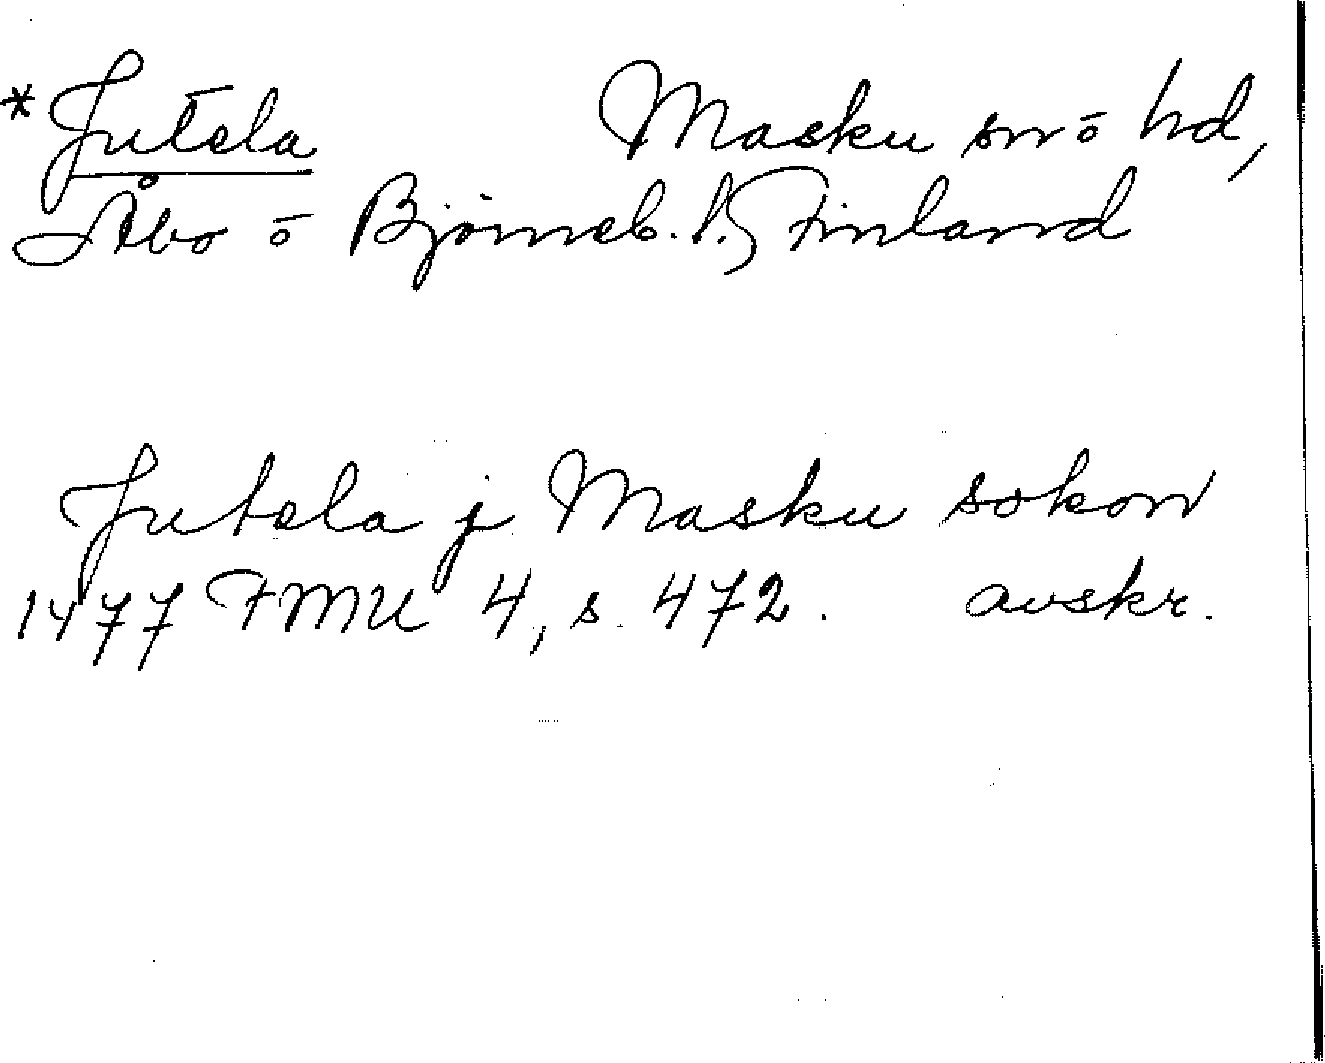 *Jutela Masku sn o hd,
Åbo o Björneb. l. Finland
Jutela j Masku sokon
1477 FMU 4, s. 472. avskr.